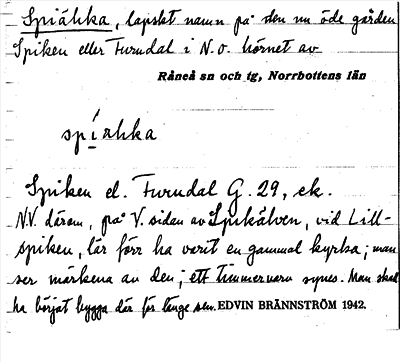 Spiähka, lapskt namn på den nu öde gården
Spiken eller Furudal i N.o. hörnet av
Råneå sn och tg, Norrbottens län
spírhka
Spiken el. Furudal G. 29, ek.
N.V. därom, på V. sidan av Spikälven, vid Lill-
spiken, lär förr ha varit en gammal kyrka; man
ser märkena av den; ett timmervarv synes. Man skall
ha börjat bygga där för länge sen. EDVIN BRÄNNSTRÖM 1942.